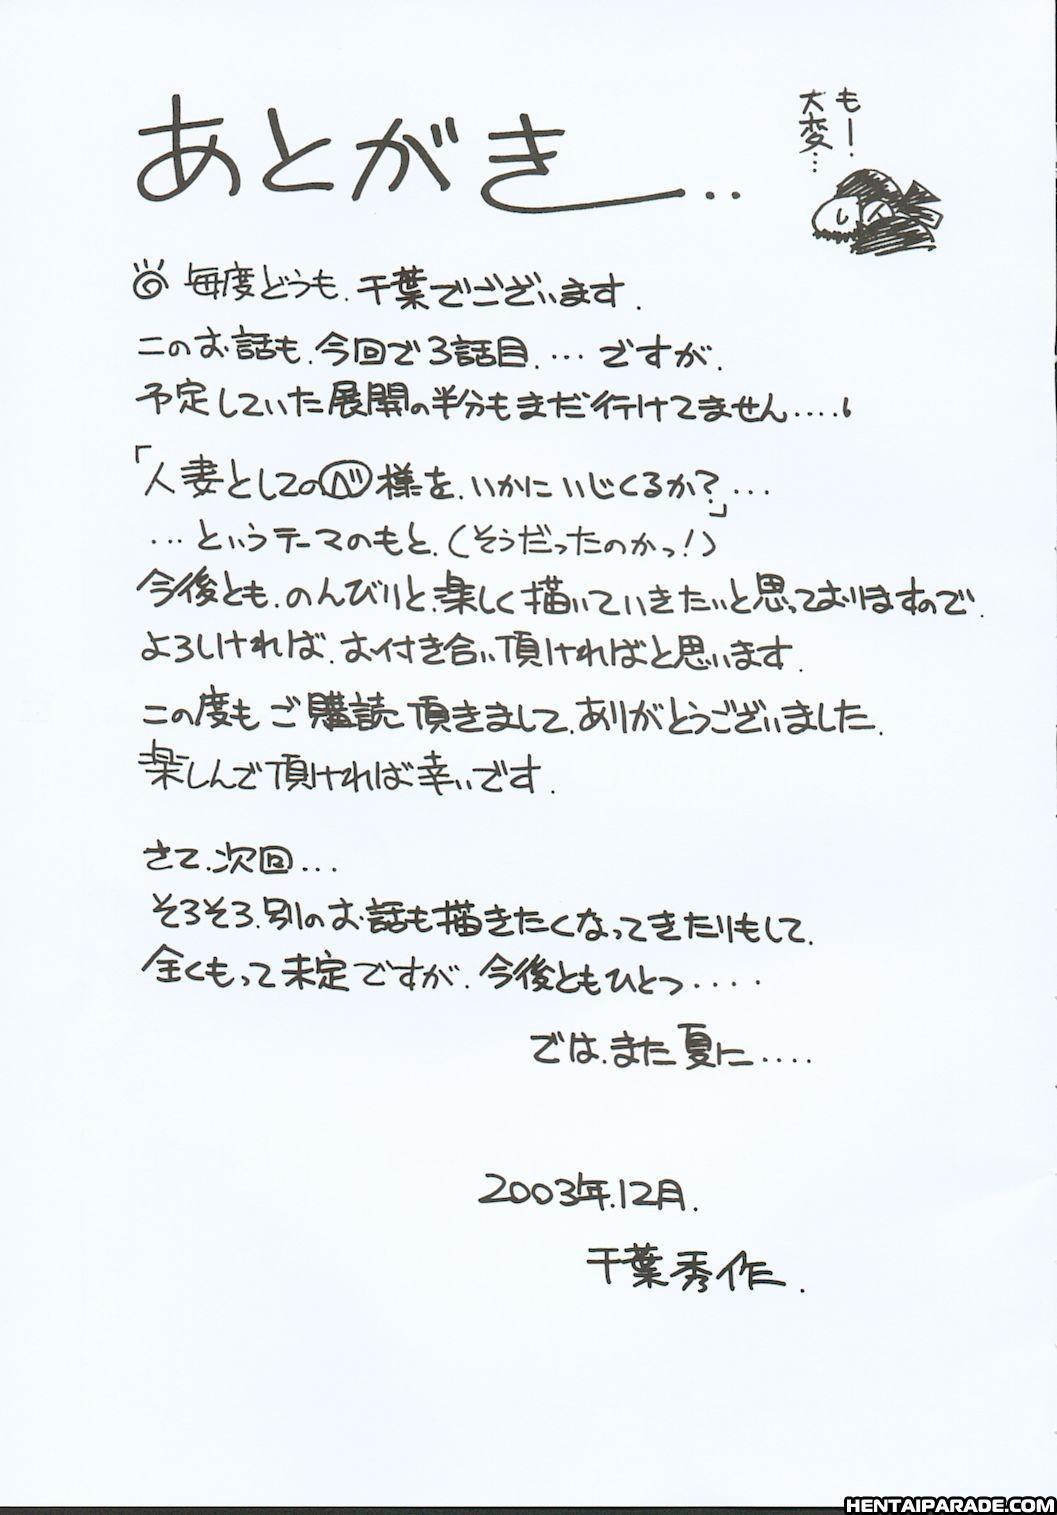 あとがき..
もー!
大変…
◎ 毎度どうも、千葉でございます。
このお話も、今回で3話目、…ですが、
予定していた展開の半分もまだ行けてません....。
「人妻としてのベ様を、いかにいじくるか?…」
…というテーマのもと、(そうだったのかっ!)
今後とも、のんびりと、楽しく描いていきたいと思っておりますので、
よろしければ、お付き合い頂ければと思います。
この度もご購読頂きまして、ありがとうございました。
楽しんで頂ければ幸いです。
さて、次回...
そろそろ、別のお話も描きたくなってきたりもして、
全くもって未定ですが、今後ともひとつ....
では、また夏に....
2003年、12月.
千葉秀作.
HENTAIPARADE.COM